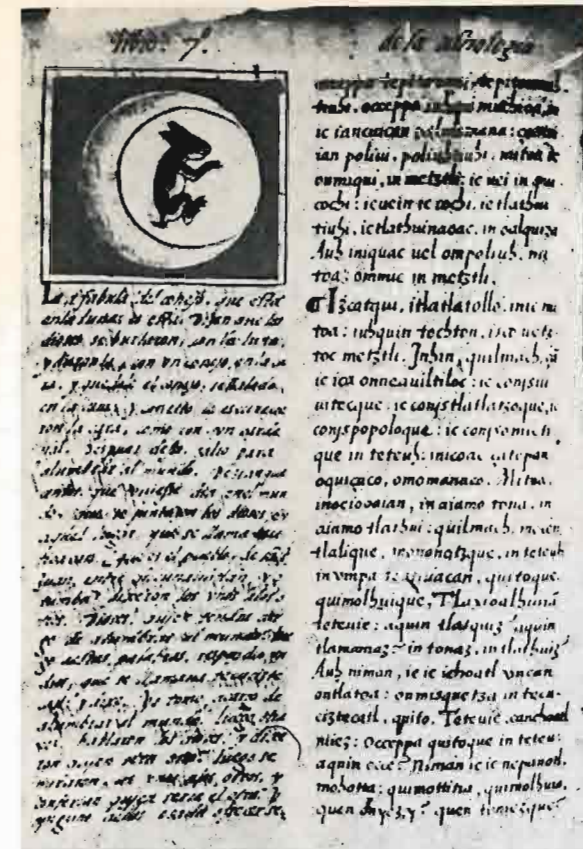 libro. 7º.
de la astrologia
La fabula del conejo, que esta
en la luna es esta: Dizen que los
dioses se burlaron, con la luna,
y dieronla, con un conejo, en la ca
ra. y quedole el conejo, señalado,
en la cara, y con esto le escurecieron
la cara, como con un carde
nal. Despues desto, salio para
alumbrar al mundo. Dezian que
antes que oviesse dia en el mun
do, que se juntaron los dioses, en
aquel lugar, que se llama teu
tioacan, que es el pueblo de sant
juan, entre y
dixeron los unos a los
otros. Dioses, quien tendra cargo
de alumbrar al mundo?
destas palabras, respondio, un
dios, que se llamava
y dixo. Yo tomo cargo de
alumbrar al mundo. luego otra
vez, hablaron los dioses, y dixe
ron quien sera otro? luego se
miraron los unos a los otros, y
conferian quien seria el otro? y
ninguno dellos osava ofrecerse,
occeppa
ic iancuican
ian poliui, mitoa ic
onmiqui, in metztli: ic uei in qui
cochi: ic uei in te cochi, ic tlathui
tiuh, ic tlathuinaoac, in oalquiza
Auh iniquac uel ompoliuh, mi
toa: ommic in metztli.
Izcatqui, itlatlatollo, inic mi
toa: iuhquin tochton, ixco uetz
toc metztli. Inhin, quilmach,
ic ica onneauiltiloc: ic conixiui
uitecque: ic conjxtlatlatzoque, ic
conjxpopoloque: ic
que in teteuh: inicoac çatepan
oquiçaco, omomanaco. Mitoa,
inocioaian, in aiamo tona, in
aiamo tlathui: quilmach,
tlalique, mononotzque, in teteuh
in umpa teutiuacan, quitoque.
quimolhuique, Tlaxioalhuian
teteuie: aquin tlatquiz? aquin
tlamamaz? in tonaz, in tlathuiz?
Auh niman, ie ie iehoatl uncan
ontlatoa: onmixquetza in tecu
ciztecatl, quito. Teteuie, canehoatl
niiez: Occeppa quitoque in teteu:
aquin occe? Niman ie ic nepanotl,
mohotta: quimottitia, quimolhuia.
quen onyez, y? quen toniezque?